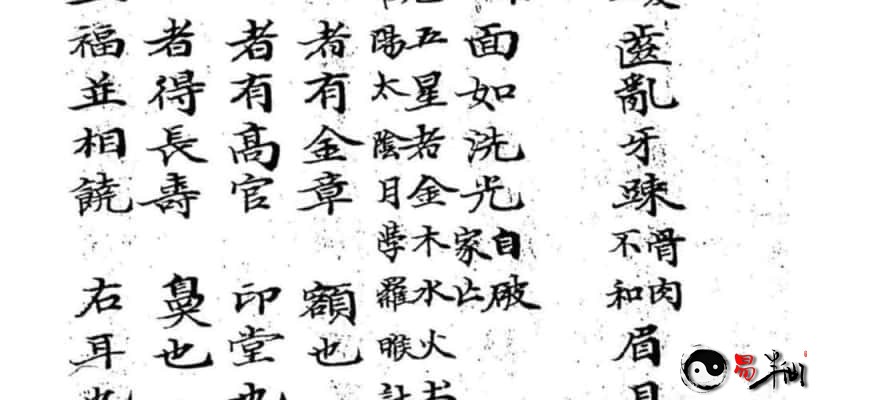 齒亂牙踈骨肉不和眉
面如洗光自破家亡
五星者金木水火
陽太陰月孛羅睺計
者有金章 額也
者有高官 印堂也
者得長壽 鼻也
福並相饒 右耳也
易半仙